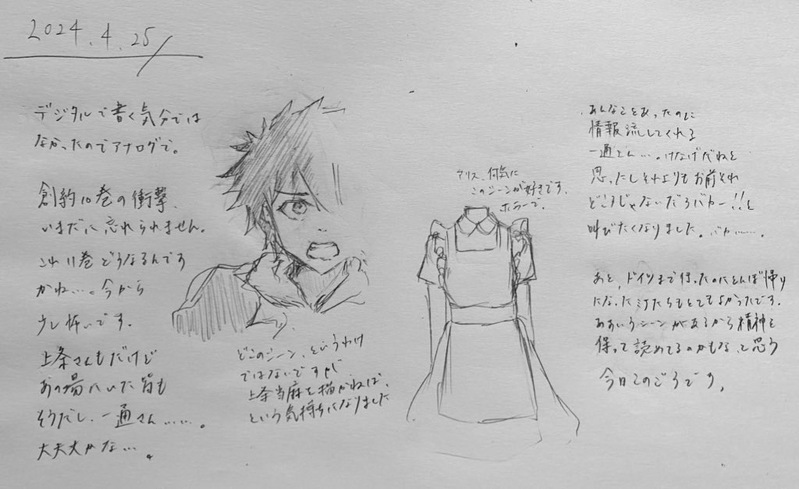 2024.4.25
デジタルで書く気分では
なかったのでアナログで。
創約10巻の衝撃、
いまだに忘れられません。
これ11巻どうなるんです
かね…。今から
少し怖いです。
上条さんもだけど
あの場にいた皆も
そうだし、一通さん……。
大丈夫かな…。
どこのシーン、というわけ
ではないですが
上条当麻を描かねば、
という気持ちになりました
アリス、何気に
このシーンが好きです。
ホラーで。
あんなことあったのに
情報流してくれる
一通さん…。けなげだねと
思ったしそれよりもお前それ
どころじゃないだろバカー!!と
叫びたくなりました。バカ……。
あと、ドイツまで行ったのにとんぼ帰り
になったミナたちもとてもよかったです。
ああいうシーンがあるから精神を
保って読めてるのかもな、と思う
今日このごろです。